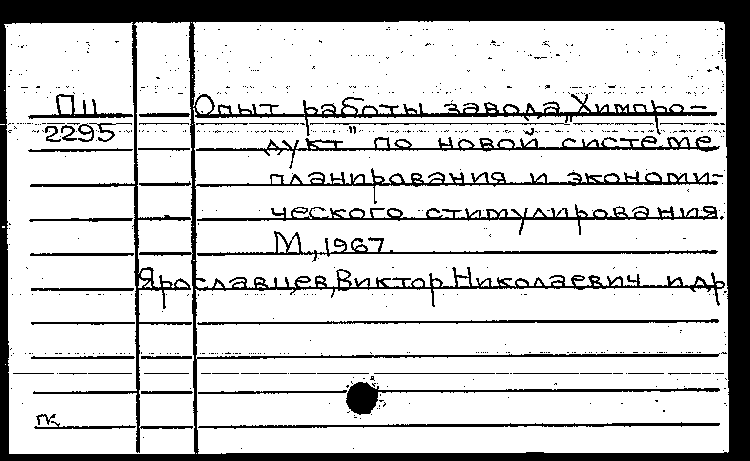 П11 Опыт работы завода „Химпро-
2295 дукт" по новой системе
планирования и экономи-
ческого стимулирования.
М., 1967.
Ярославцев, Виктор Николаевич и др
пк